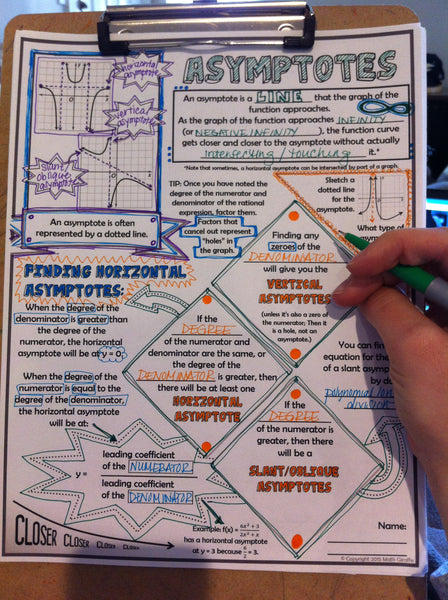 ASYMPTOTES
horizontal
asymptote
vertical
asymptote
Slant
oblique
asymptote
An asymptote is a LINE that the graph of the
function approaches.
As the graph of the function approaches INFINITY
(or NEGATIVE INFINITY), the function curve
gets closer and closer to the asymptote without actually
intersecting / touching it."
*Note that sometimes, a horizontal asymptote can be intersected by part of a graph.
An asymptote is often
represented by a dotted line.
TIP: Once you have noted the
degree of the numerator and
denominator of the rational
expression, factor them.
Factors that
cancel out represent
"holes" in
the graph.
Sketch a
dotted line
for the
asymptote.
What type of
Finding any
zeroes of the
DENOMINATOR
will give you the
VERTICAL
ASYMPTOTES
(unless it's also a zero of the
numerator; Then it
is a hole, not an
asymptote.)
FINDING HORIZONTAL
ASYMPTOTES:
When the degree of the
denominator is greater than
the degree of the
numerator, the horizontal
asymptote will be at y = 0.
When the degree of the
numerator is equal to the
degree of the denominator,
the horizontal asymptote
will be at:
If the
DEGREE
of the numerator and
denominator are the same, or
the degree of the
DENOMINATOR is greater, then
there will be at least one
HORIZONTAL
ASYMPTOTE
If the
DEGREE
of the numerator is
greater, then there will be a
SLANT/OBLIQUE
ASYMPTOTES
You can find
equation for the
of a slant asympt
by do
polynomial lon
division
y =
leading coefficient
of the NUMERATOR
leading coefficient
of the DENOMINATOR
CLOSER CLOSER CLOSER CLOSER
Example: f(x) = 6x² + 3 / 2x² + x
has a horizontal asymptote
at y = 3 because 6/2 = 3.
Name:
© Copyright 2015 Math Giraffe